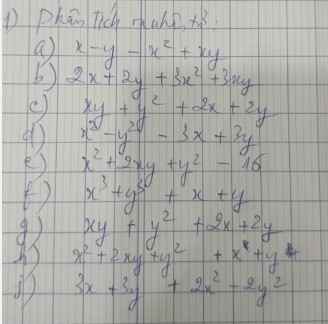 1) phân tích nhân tử:
a) x - y - x² + xy
b) 2x + 2y + 3x² + 3xy
c) xy + y² + 2x + 2y
d) x² - y² - 3x + 3y
e) x² + 2xy + y² - 16
f) x³ + y³ + x + y
g) xy + y² + 2x + 2y
h) x² + 2xy + y² + x + y
j) 3x + 3y + 2x² - 2y²